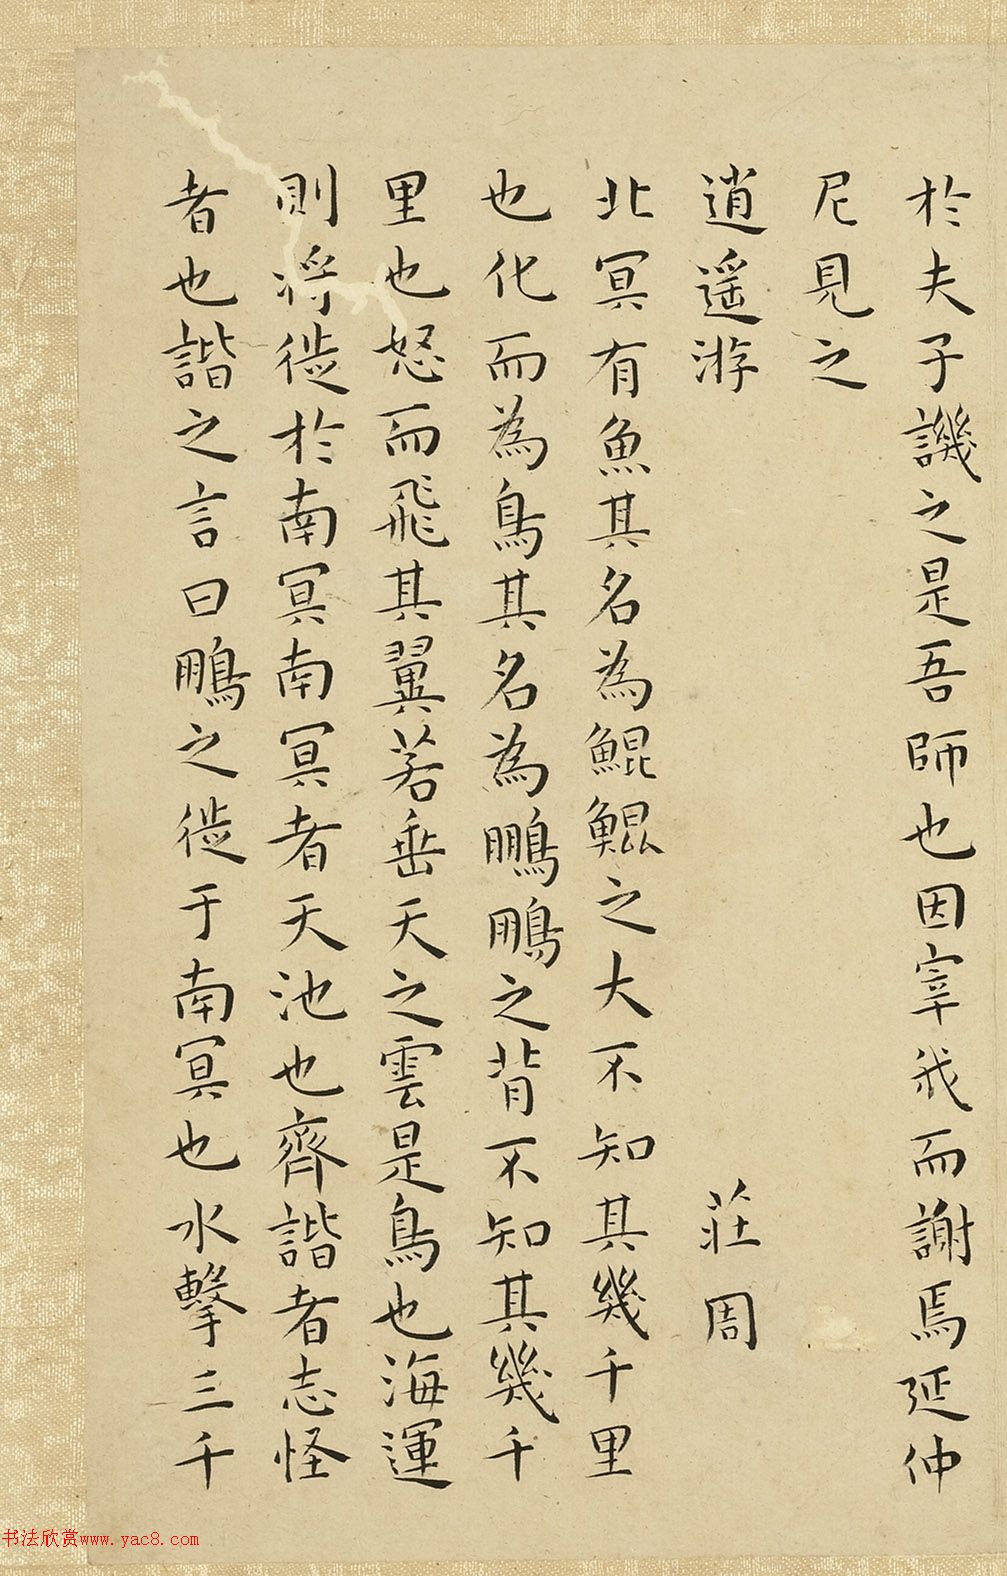 於夫子譏之是吾師也因宰我而謝焉延仲
尼見之
逍遥游 莊周
北冥有魚其名為鯤鯤之大不知其幾千里
也化而為鳥其名為鵬鵬之背不知其幾千
里也怒而飛其翼若垂天之雲是鳥也海運
則將徙於南冥南冥者天池也齊諧者志怪
者也諧之言曰鵬之徙于南冥也水擊三千
书法欣赏www.yac8.com